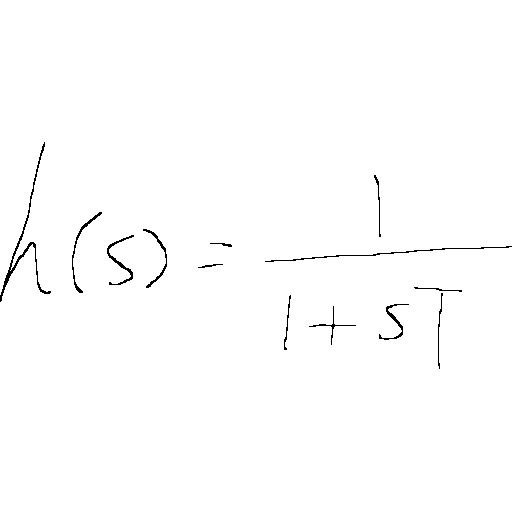 h(s) = \frac{1}{1 + sT}